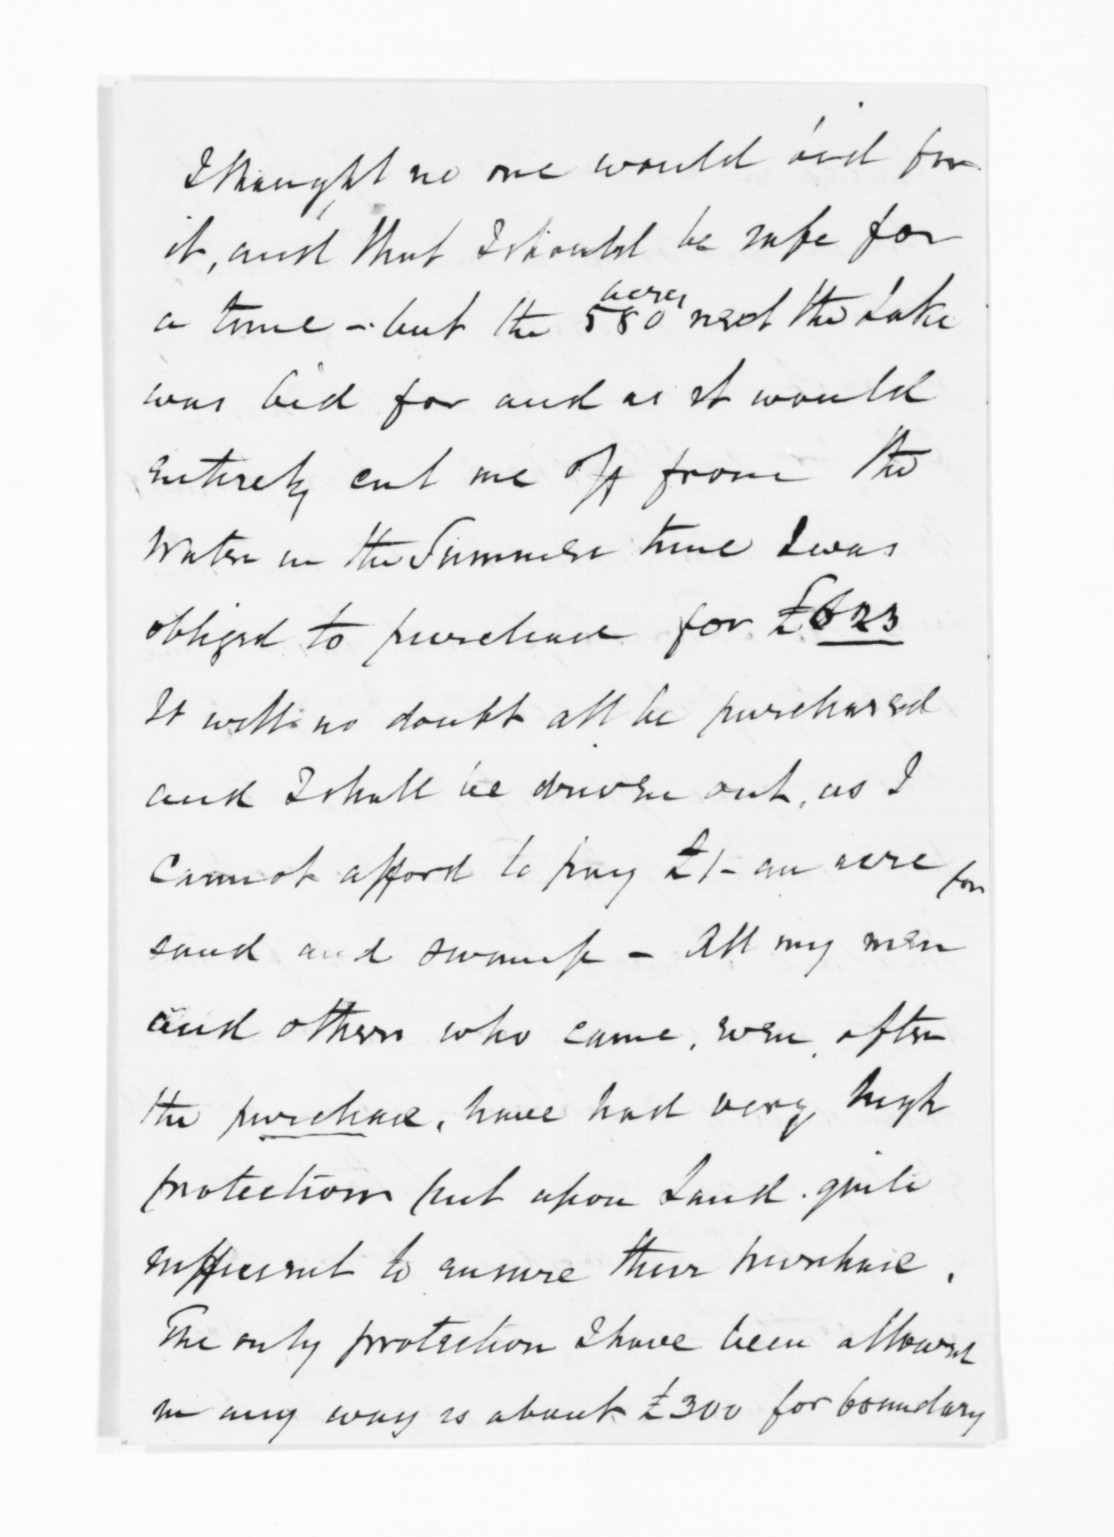 I thought no one would bid for
it, and that I should be safe for
a time - but the 580 acres next the Lake
was bid for and as it would
entirely cut me off from the
Water in the Summer time I was
obliged to purchase for £623
It will no doubt all be purchased
and I shall be driven out, as I
cannot afford to pay £1- an acre for
sand and swamp - All my men
and others who came, even, after
the purchase, have had very high
protections put upon Land quite
sufficient to ensure their purchase.
The only protection I have been allowed
in any way is about £300 for boundary